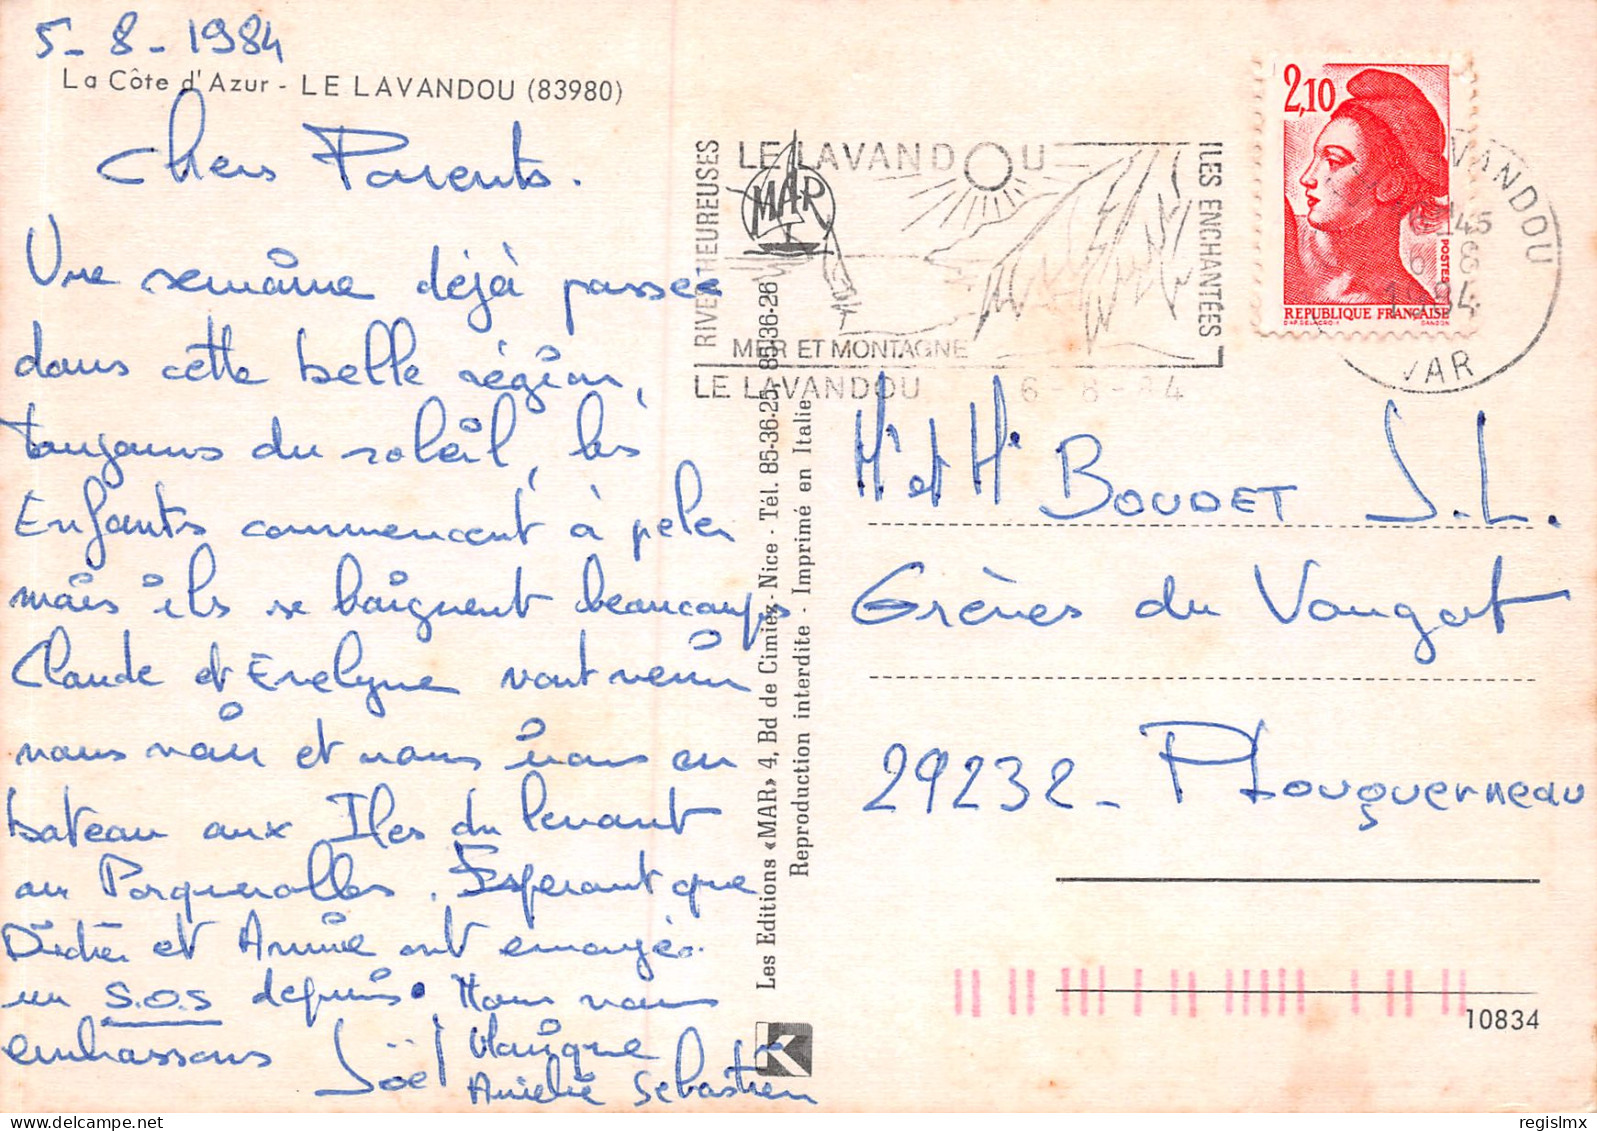 5-8-1984
La Côte d'Azur - LE LAVANDOU (83980)
Chers Parents.
Une semaine déjà passée
dans cette belle région,
toujours du soleil, les
Enfants commencent à peler
mais ils se baignent beaucoups
Claude et Evelyne vont venir
nous voir et nous irons en
bateau aux Iles du levant
ou Porquerolles. Esperant que
Didier et Annie ont envoyés
un S.O.S depuis. Nous vous
embrassons Joël
Amélie Sebastien
Les Editions «MAR» 4, Bd de Cimiez - Nice - Tél. 85-36-25 - 85-36-26
Reproduction interdite - Imprimé en Italie
MAR
RIVES HEUREUSES
LE LAVANDOU
ILES ENCHANTÉES
MER ET MONTAGNE
LE LAVANDOU 6-8-84
2,10
POSTES
REPUBLIQUE FRANÇAISE
D'AP. DELACROIX GANDON
LAVANDOU
45
6 8
1984
VAR
Mr et Me BOUDET J.L.
Grèves du Vougot
29232 - Plouguerneau
10834
K
regislmx